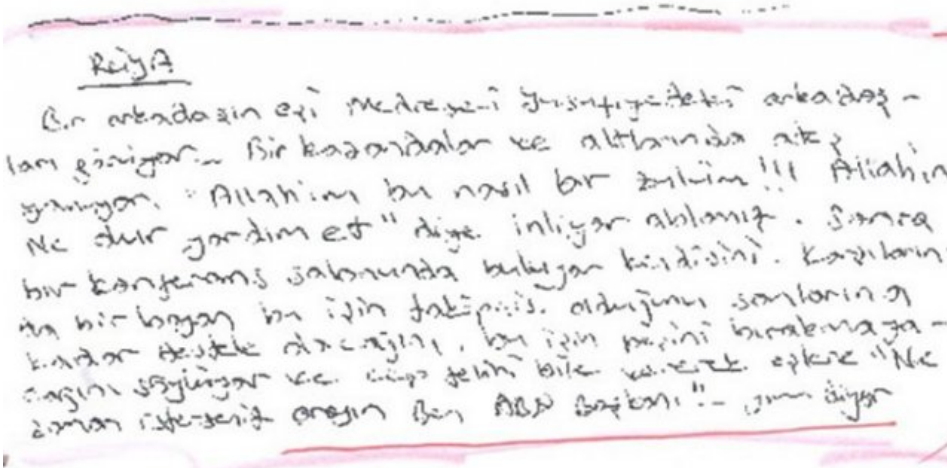 RüyA
Bir arkadaşın eşi Medreseyi Yusufiyedeki arkadaş-
ları görüyor... Bir kazandalar ve altlarında ateş
yanıyor. "Allahım bu nasıl bir zulüm!!! Allahım
Ne olur yardım et" diye inliyor ablamız. Sonra
bir konferans salonunda buluyor kendisini. Karşılarında
da bir bayan bu işin takipçisi olduğunu sonlarına
kadar destek olacağını, bu işin peşini bırakmaya-
cağını söylüyor ve cep telini bile vererek "Ne
zaman isterseniz arayın Ben ABD Başkanı"... diyor